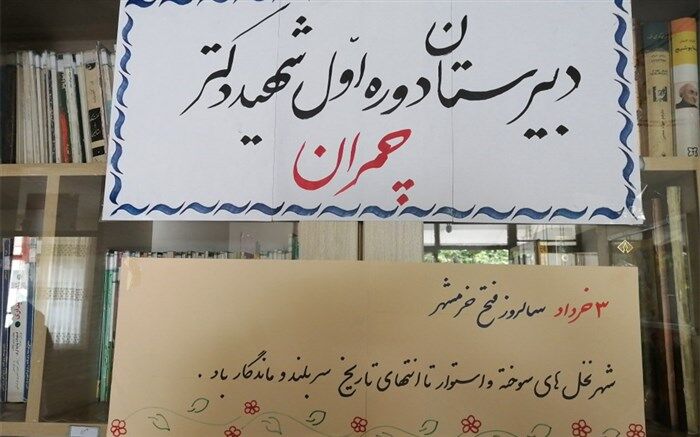 دبیرستان دوره اوّل شهید دکتر
چمران
۳ خرداد سالروز فتح خرمشهر
شهر نخل های سوخته و استوار تا انتهای تاریخ سربلند و ماندگار باد .